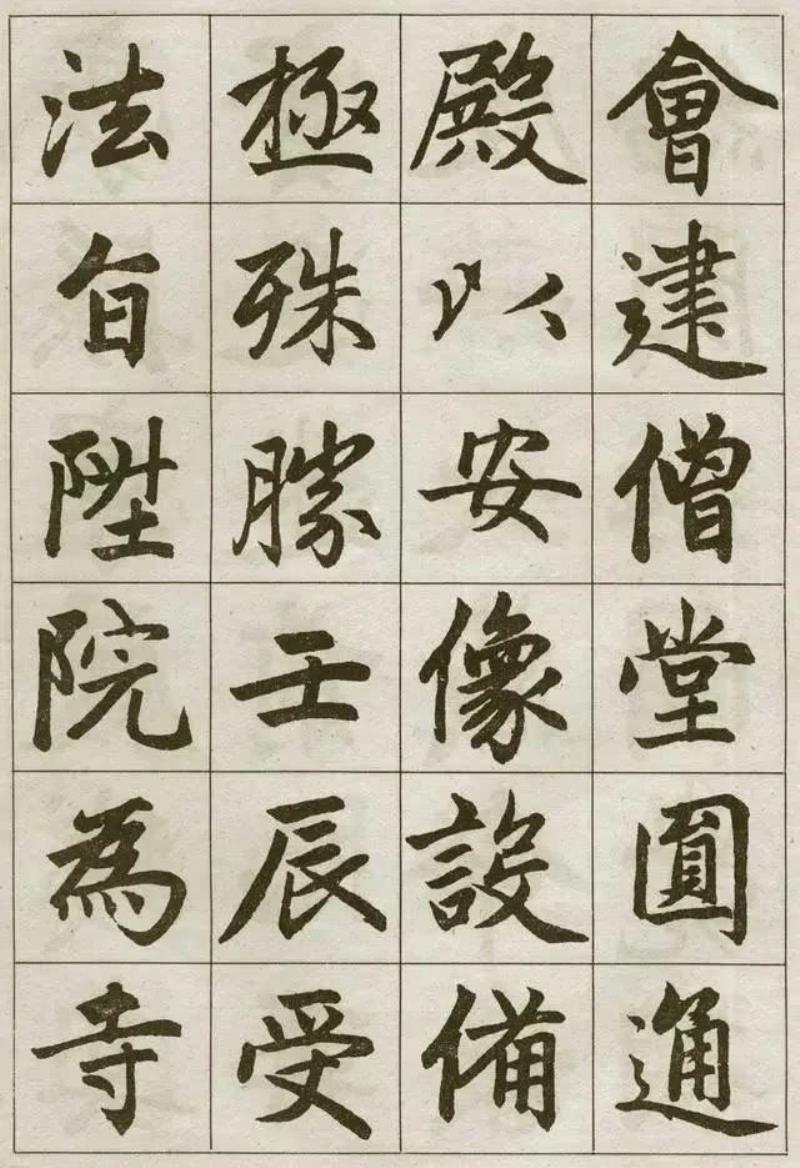 會建僧堂圓通
殿以安像設備
極殊勝壬辰受
法旨陞院為寺